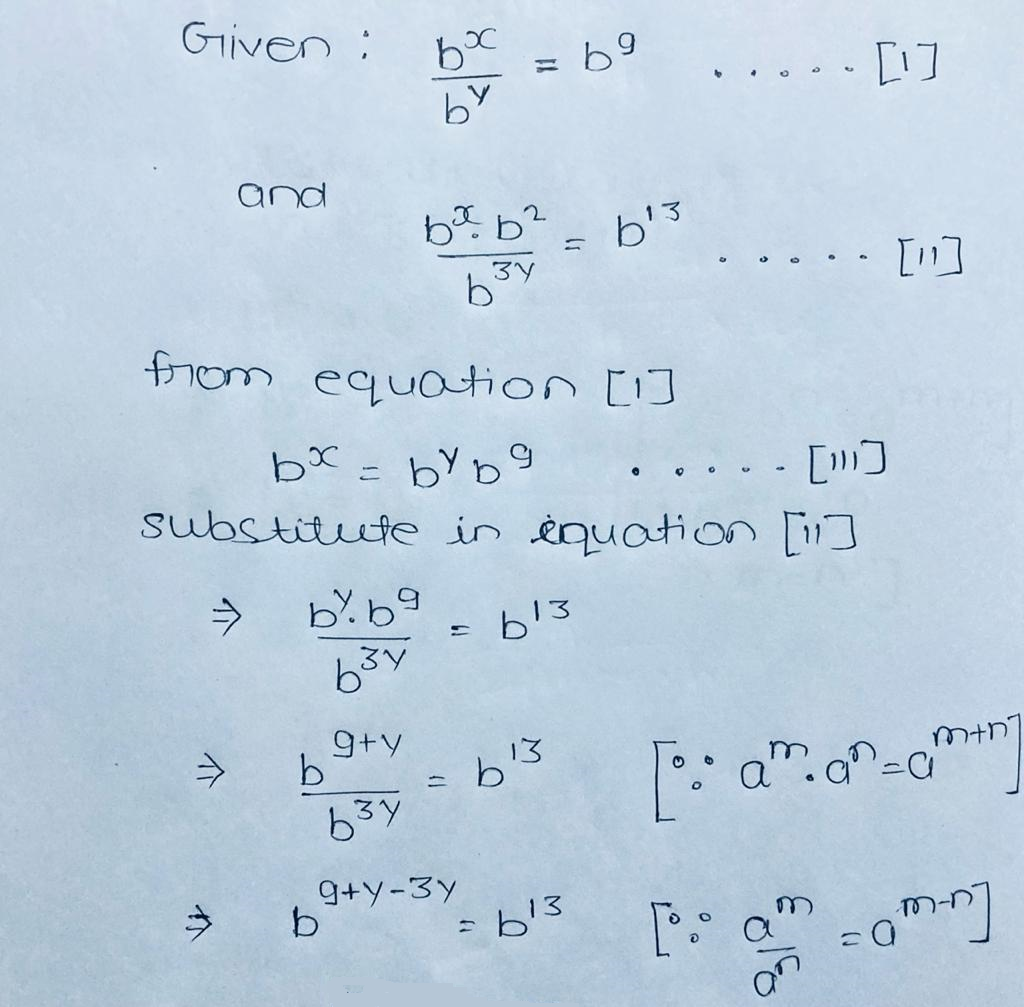 Given : b^x / b^y = b^9 ..... [I]
and b^x · b^2 / b^{3y} = b^{13} ..... [II]
from equation [I]
b^x = b^y b^9 ..... [III]
substitute in equation [II]
⇒ b^y · b^9 / b^{3y} = b^{13}
⇒ b^{9+y} / b^{3y} = b^{13} [∵ a^m · a^n = a^{m+n}]
⇒ b^{9+y-3y} = b^{13} [∵ a^m / a^n = a^{m-n}]